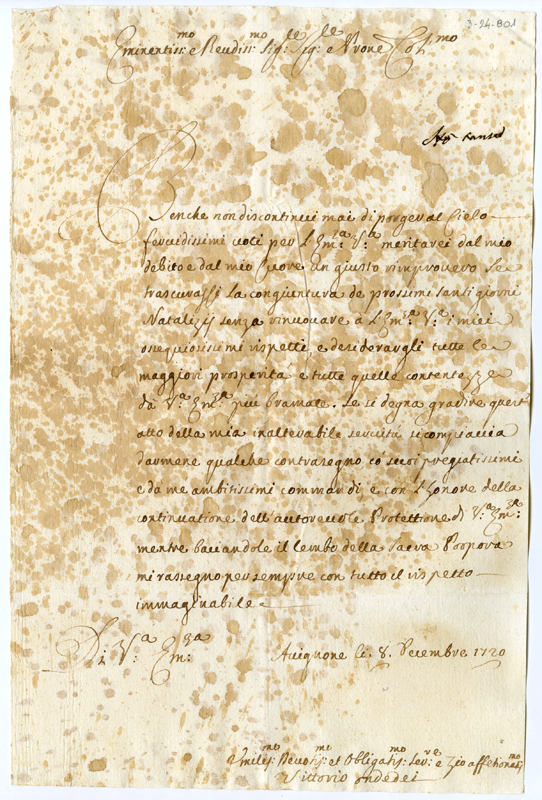 3-24-801
Eminentiss:mo e Reudiss:mo Sig:le Sig:le e Prone Col:mo
Benche non discontinui mai di porger al Cielo
feruidissimi uoci per l'Em:za V:ra meritarei dal mio
debito e dal mio Cuore un giusto rimprouero se
trascurassi la congiuntura de prossimi santi giorni
Natalizij senza rinuouare à l'Em:za V:ra i miei
ossequiosissimi rispetti, e desiderargli tutte le
maggiori prosperità e tutte quelle contentezze
da V:ra Em:za più bramate. se si degna gradire quest
atto della mia inalterabile seruitù si compiaccia
darmene qualche contrasegno co' suoi pregiatissimi
e da me ambitissimi commandi, e con l'honore della
continuatione dell'autoreuole Protettione di V:ra Em:za
mentre baciandole il lembo della Sacra Porpora
mi rassegno per sempre con tutto il rispetto
immaginabile.
Di V:ra Em:za
Auignone li 8. Decembre 1720
Vmiliss:mo Deuotiss:mo et Obligatiss:mo Seru:re e Zio affettionatiss:mo
Vittorio Andedei